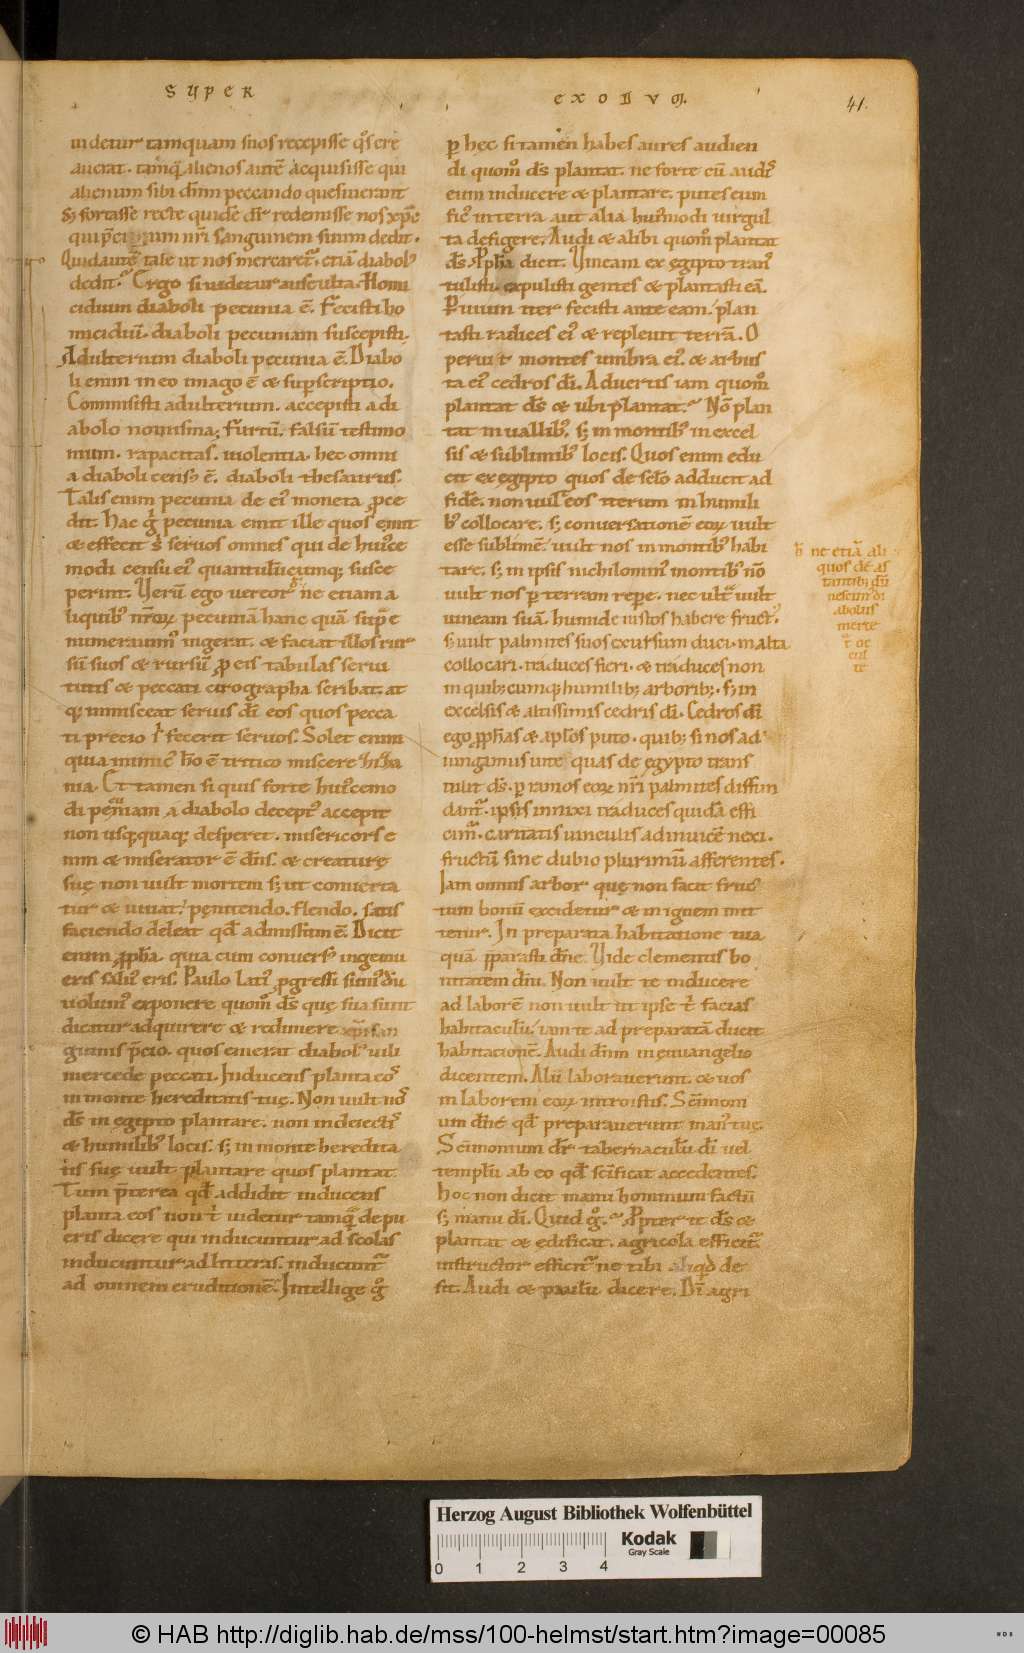 SUPER
EXODUM.
41.
uidetur tamquam suos recepisse qͦs cre
auerat. tamq̃ alienos autẽ acquisisse qui
alienum sibi dñm peccando quesiuerant
Sꝫ fortasse recte quidẽ dr̃ redemisse nos xp̃c
qui p̃ciũm nr̃i sanguinem suum dedit.
Quid autẽ tale ut nos mercaret᷒. etiã diabol᷒
dedit? Ergo si uidetur ausculta. Homi
cidium diaboli pecunia ẽ. Fecisti ho
micidiũ. diaboli pecuniam suscepisti.
Adulterium diaboli pecunia ẽ. Diabo
li enim in eo imago ẽ & sup̱scriptio.
Commisisti adulterium. accepisti a di
abolo nomisma; Furtũ. falsũ testimo
nium. rapacitas. uiolentia. hec omni
a diaboli cens᷒ ẽ. diaboli thesaurus.
Talis enim pecunia de ei᷒ moneta ꝓce
dit. Hac g̊ pecunia emit ille quos emit
& effecit sͥ seruos omnes qui de hui᷒ce
modi censu ei᷒ quantulũcumqꝫ susce
perint. Verũ ego uereor ne etiam a
liquib᷒ nr̃oꝝ pecuniã hanc quã sup̱e
numerauim᷒ ingerat. & faciat illos rur
sũ suos & rursũ ꝓ eis tabulas serui
tutis & peccati cirographa scribat. at
qꝫ immisceat seruis dĩ eos quos pecca
ti precio sͥ fecerit seruos. Solet enim
quia inimic᷒ h̃o ẽ tritico miscere ziza
nia. Et tamen si quis forte hui᷒cemo
di pecuniam a diabolo decept᷒ accepit
non usqꝫquaqꝫ desperet. misericors e
nim & miserator ẽ dñs. & creaturę
suę non uult mortem sꝫ ut conuerta
tur & uiuat. pęnitendo. flendo. satis
faciendo deleat qđ admissum ẽ. Dicit
enim ꝓph̃a. quia cum conuers᷒ ingemu
eris salu᷒ eris. Paulo lati᷒ ꝓgressi sum᷒ dũ
uolum᷒ exponere quom̊ d̃s quę sua sunt
dicatur adquirere & redimere xp̃i san
guinis p̃cio. quos emerat diabol᷒ uili
mercede peccati. Inducens planta eos
in monte hereditatis tuę. Non uult nos
d̃s in egipto plantare. non in deiectis
& humilib᷒ locis. sꝫ in monte heredita
tis suę uult plantare quos plantat
Tum p̃terea qđ addidit inducens
planta eos non t̊ uidetur tamq̃ de pu
eris dicere qui inducuntur ad scolas
inducuntur ad litteras. inducunt᷒
ad omnem eruditionẽ. Intellige g̊
ꝑ hęc si tamen habes aures audien
di quom̊ d̃s plantat. ne forte cũ audis
eum inducere & plantare. putes eum
fic᷒ in terra aut alia hui᷒modi uirgul
ta defigere. Audi & alibi quom̊ plantat
d̃s. Ꝓph̃a dicit. Vineam ex ęgipto tran᷒
tulisti. expulisti gentes & plantasti eã.
Ꝑuium iter fecisti ante eam. plan
tasti radices ei᷒ & repleuit terrã. O
peruit montes umbra ei᷒. & arbus
ta ei᷒ cedros dĩ. Aduertis iam quom̊
plantat d̃s & ubi plantat? Nõ plan
tat in uallib᷒. sꝫ in montib᷒ in excel
sis & sublimib᷒ locis. Quos enim edu
cit ex ęgipto quos de sc̃lo adducit ad
fidẽ. non uult eos iterum in humili
b᷒ collocare. sꝫ conuersationẽ eoꝝ uult
esse sublimẽ. uult nos in montib᷒ habi
tare. sꝫ in ipsis nichilomin᷒ montib᷒ nõ
uult nos ꝑ terram reꝑe. nec ultra uult
uineam suã. humide iustos habere fruct᷒.
sꝫ uult palmites suos exursum duci. in alta
collocari. traduces fieri. & traduces non
in quibꝫcumqꝫ humilibꝫ arboribꝫ. sꝫ in
excelsis & altissimis cedris dĩ. Cedros dĩ
ego ꝓph̃as & ap̃los puto. quibꝫ si nos ad
iungimus uite quas de ęgypto trans
tulit d̃s. ꝑ ramos eoꝝ nr̃i palmites diffun
dant᷒. ipsis innixi traduces quidã effi
cim᷒. caritatis uinculis adinuicẽ nexi.
fructũ sine dubio plurimũ afferentes.
Iam omnis arbor quę non facit fruc
tum bonũ excidetur & in ignem mit
tetur. In preparata habitatione tua
quã p̃parasti dñe. Vide clementis bo
nitatem dñi. Non uult te inducere
ad laborẽ non uult ut ipse t̊ facias
habitaculũ. iam te ad preparatã ducit
habitationẽ. Audi dñm in ęuuangelio
dicentem. Alii laborauerunt. & uos
in laborem eoꝝ introistis. Sc̃imoni
um dñe qđ preparauerunt man᷒ tuę.
Sc̃imonium dr̃ tabernaculũ dĩ uel
templũ ab eo qđ sc̃ificat accedentes.
Hoc non dicit manu hominum factũ
sꝫ manu dĩ. Quid g̊? Ꝓpter te d̃s &
plantat & edificat. agricola efficit᷒.
instructor efficit᷒ ne tibi aliqđ de
sit. Audi & paulũ dicere. Dĩ agri
ne etiã ali
quos de as
tantibꝫ dũ
nescim᷒ di
abolus
merce
t̃ oc
cul
te
Herzog August Bibliothek Wolfenbüttel
Kodak
Gray Scale
0 1 2 3 4
© HAB http://diglib.hab.de/mss/100-helmst/start.htm?image=00085